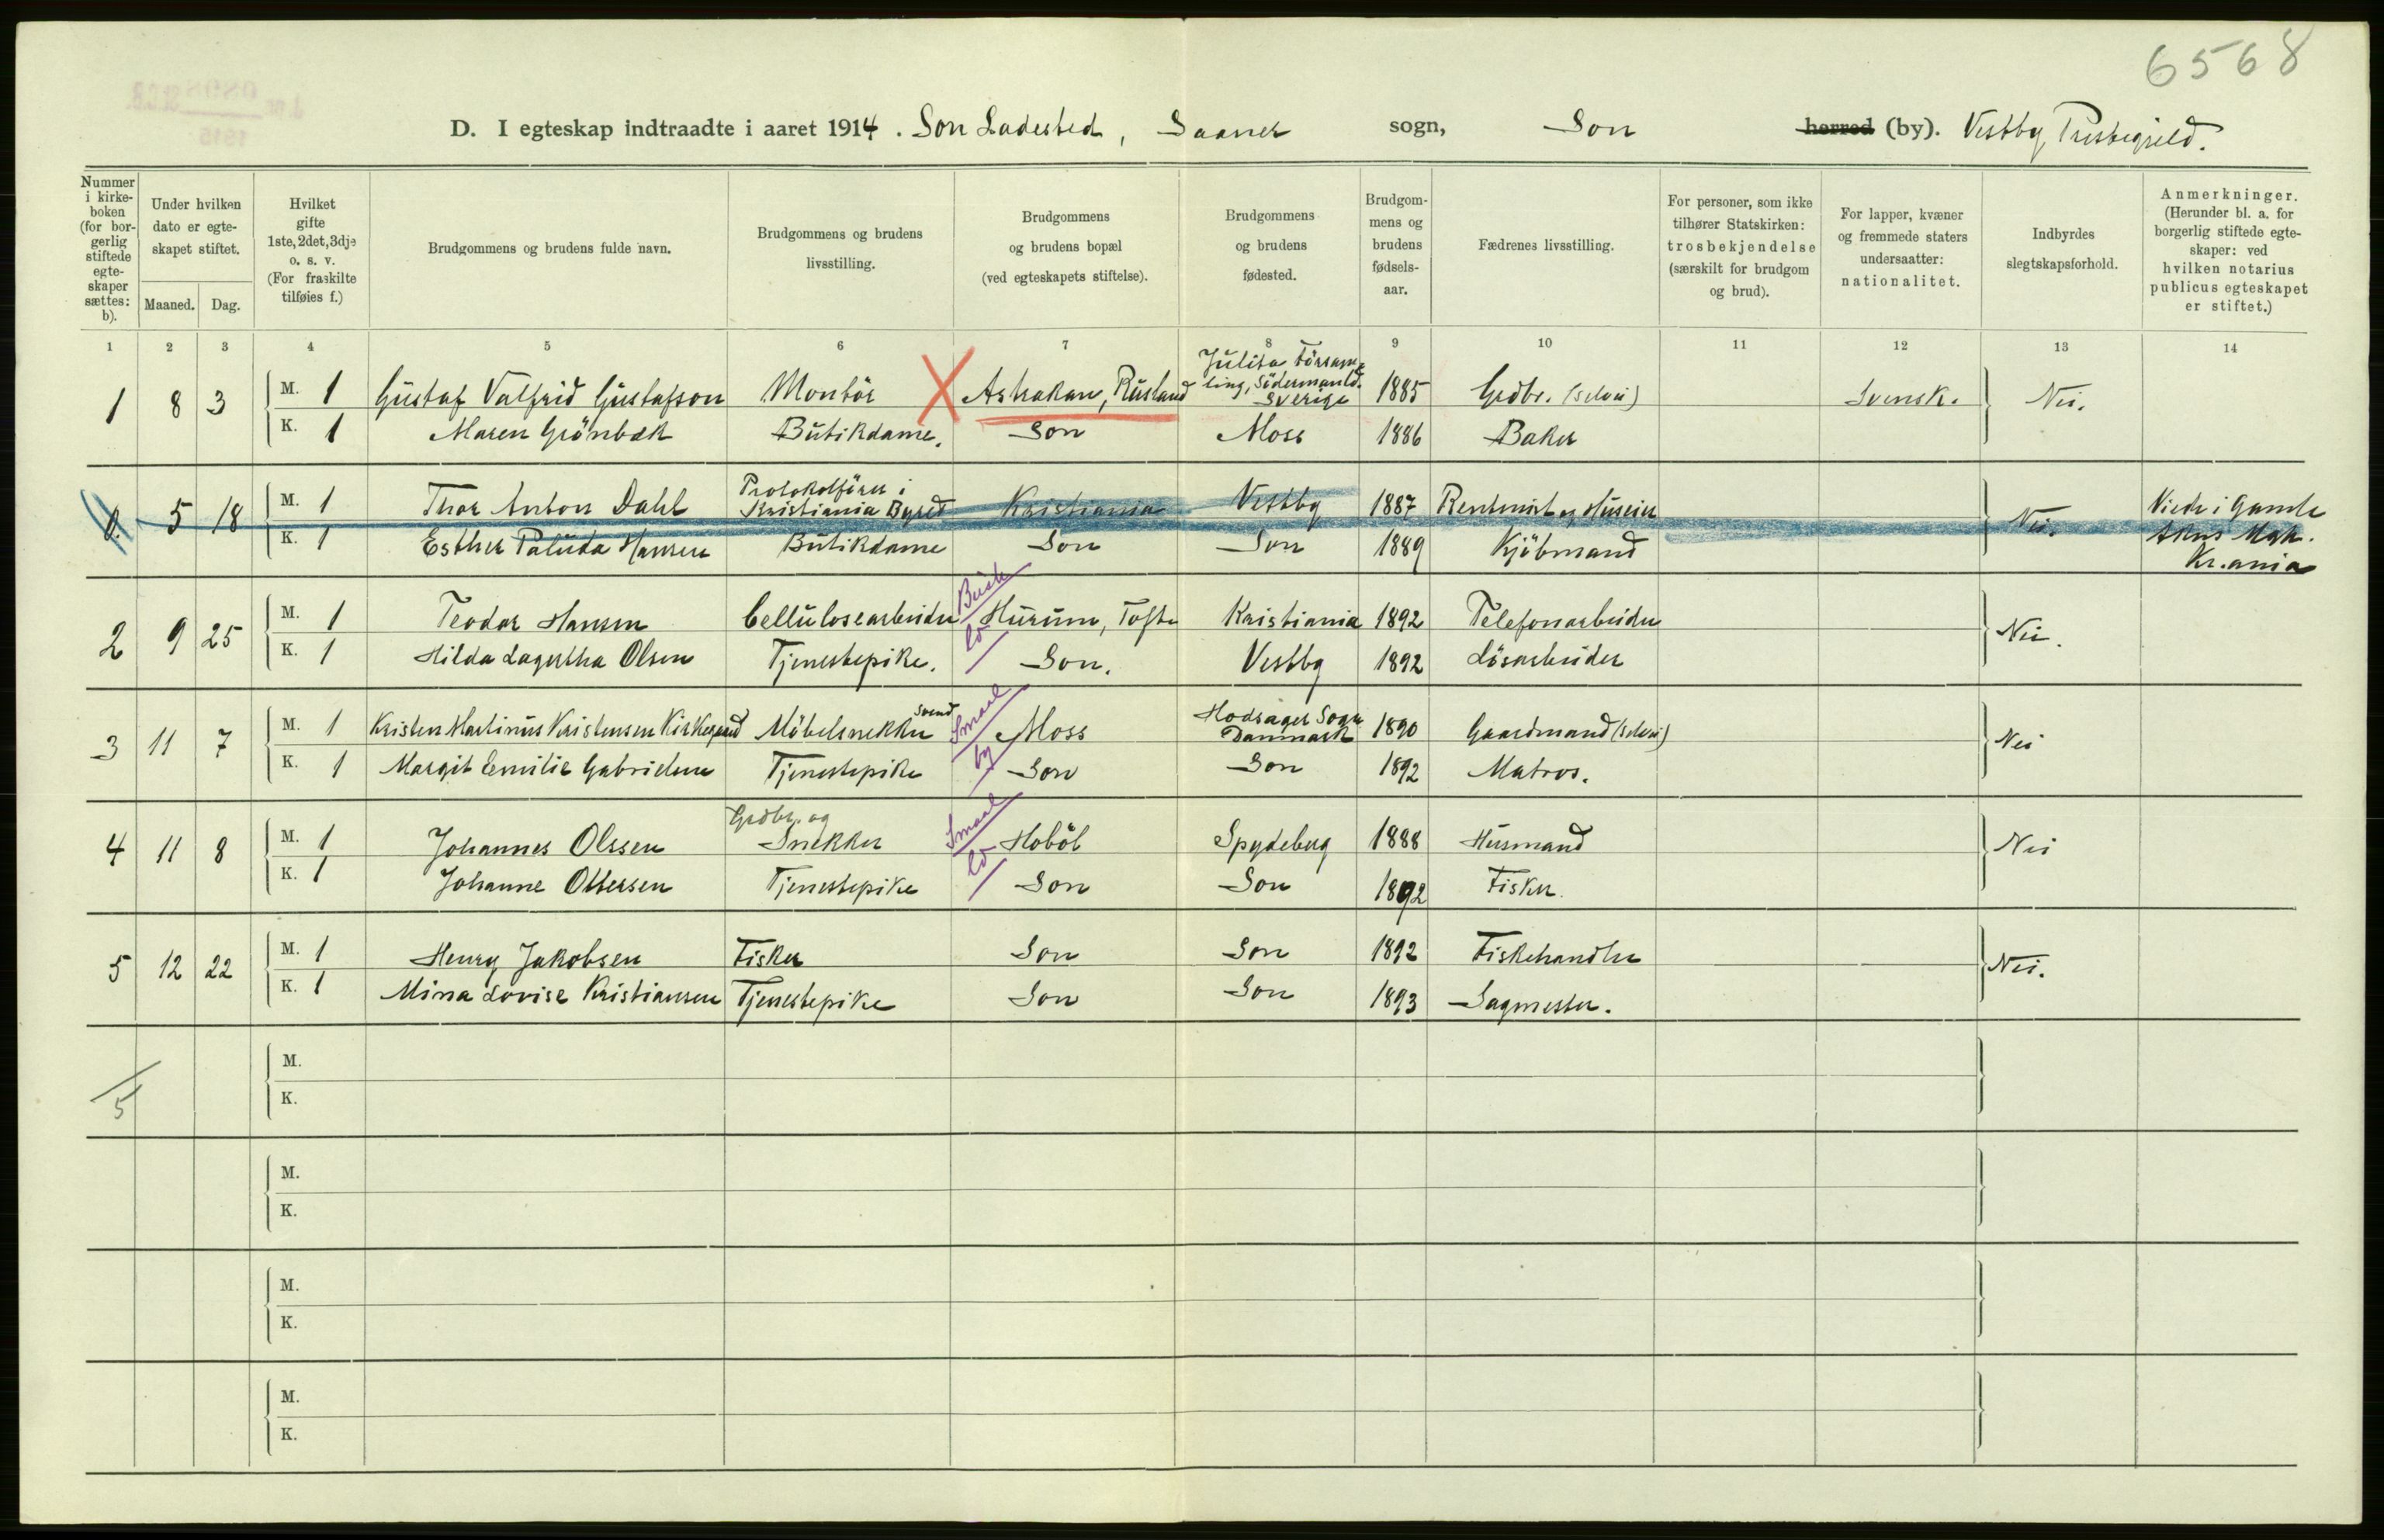 6568
D. I egteskap indtraadte i aaret 1914. Son Ladested, Saaner sogn, Son herred (by). Vestby Prestegjeld.
Nummer i kirkeboken (for borgerlig stiftede egteskaper sættes: b).
Under hvilken dato er egteskapet stiftet.
Maaned. Dag.
Hvilket gifte 1ste, 2det, 3dje o. s. v. (For fraskilte tilføies f.)
Brudgommens og brudens fulde navn.
Brudgommens og brudens livsstilling.
Brudgommens og brudens bopæl (ved egteskapets stiftelse).
Brudgommens og brudens fødested.
Brudgommens og brudens fødselsaar.
Fædrenes livsstilling.
For personer, som ikke tilhører Statskirken: trosbekjendelse (særskilt for brudgom og brud).
For lapper, kvæner og fremmede staters undersaatter: nationalitet.
Indbyrdes slegtskapsforhold.
Anmerkninger. (Herunder bl. a. for borgerlig stiftede egteskaper: ved hvilken notarius publicus egteskapet er stiftet.)
1 2 3 4 5 6 7 8 9 10 11 12 13 14
1 8 3 M. 1 Gustaf Valfrid Gustafson Montör Astrakan, Rusland Julita Församling, Södermanld. Sverige 1885 Grdbr. (selvei) Svensk. Nei.
K. 1 Maren Grönbæk Butikdame. Son Moss 1886 Baker
0. 5 18 M. 1 Thor Anton Dahl Protokolförer i Kristiania Byret Kristiania Vestby 1887 Rentenist og Huseier Nei. Viede i Gamle Akers Mgh. Kr.ania
K. 1 Esther Paluda Hansen Butikdame Son Son 1889 Kjöbmand
2 9 25 M. 1 Teodor Hansen Cellulosearbeider Busk Ld Hurum, Tofte Kristiania 1892 Telefonarbeider Nei.
K. 1 Hilda Lagertha Olsen Tjenestepike. Son. Vestby 1892 Lösarbeider
3 11 7 M. 1 Kristen Martinus Kristensen Kirkegaard Möbelsnekker svend Smaal by Moss Hodsager Sogn Danmark 1890 Gaardmand (selvei) Nei
K. 1 Margit Emilie Gabrielsen Tjenestepike Son Son 1892 Matros.
4 11 8 M. 1 Johannes Olssen Grdbr. og Snekker Smaal Ld Hoböl Spydeberg 1888 Husmand Nei
K. 1 Johanne Ottersen Tjenestepike Son Son 1892 Fisker.
5 12 22 M. 1 Henry Jakobsen Fisker Son Son 1892 Fiskehandler Nei.
K. 1 Mina Lovise Kristiansen Tjenestepike Son Son 1893 Sagmester.
M.
5
K.
M.
K.
M.
K.
M.
K.